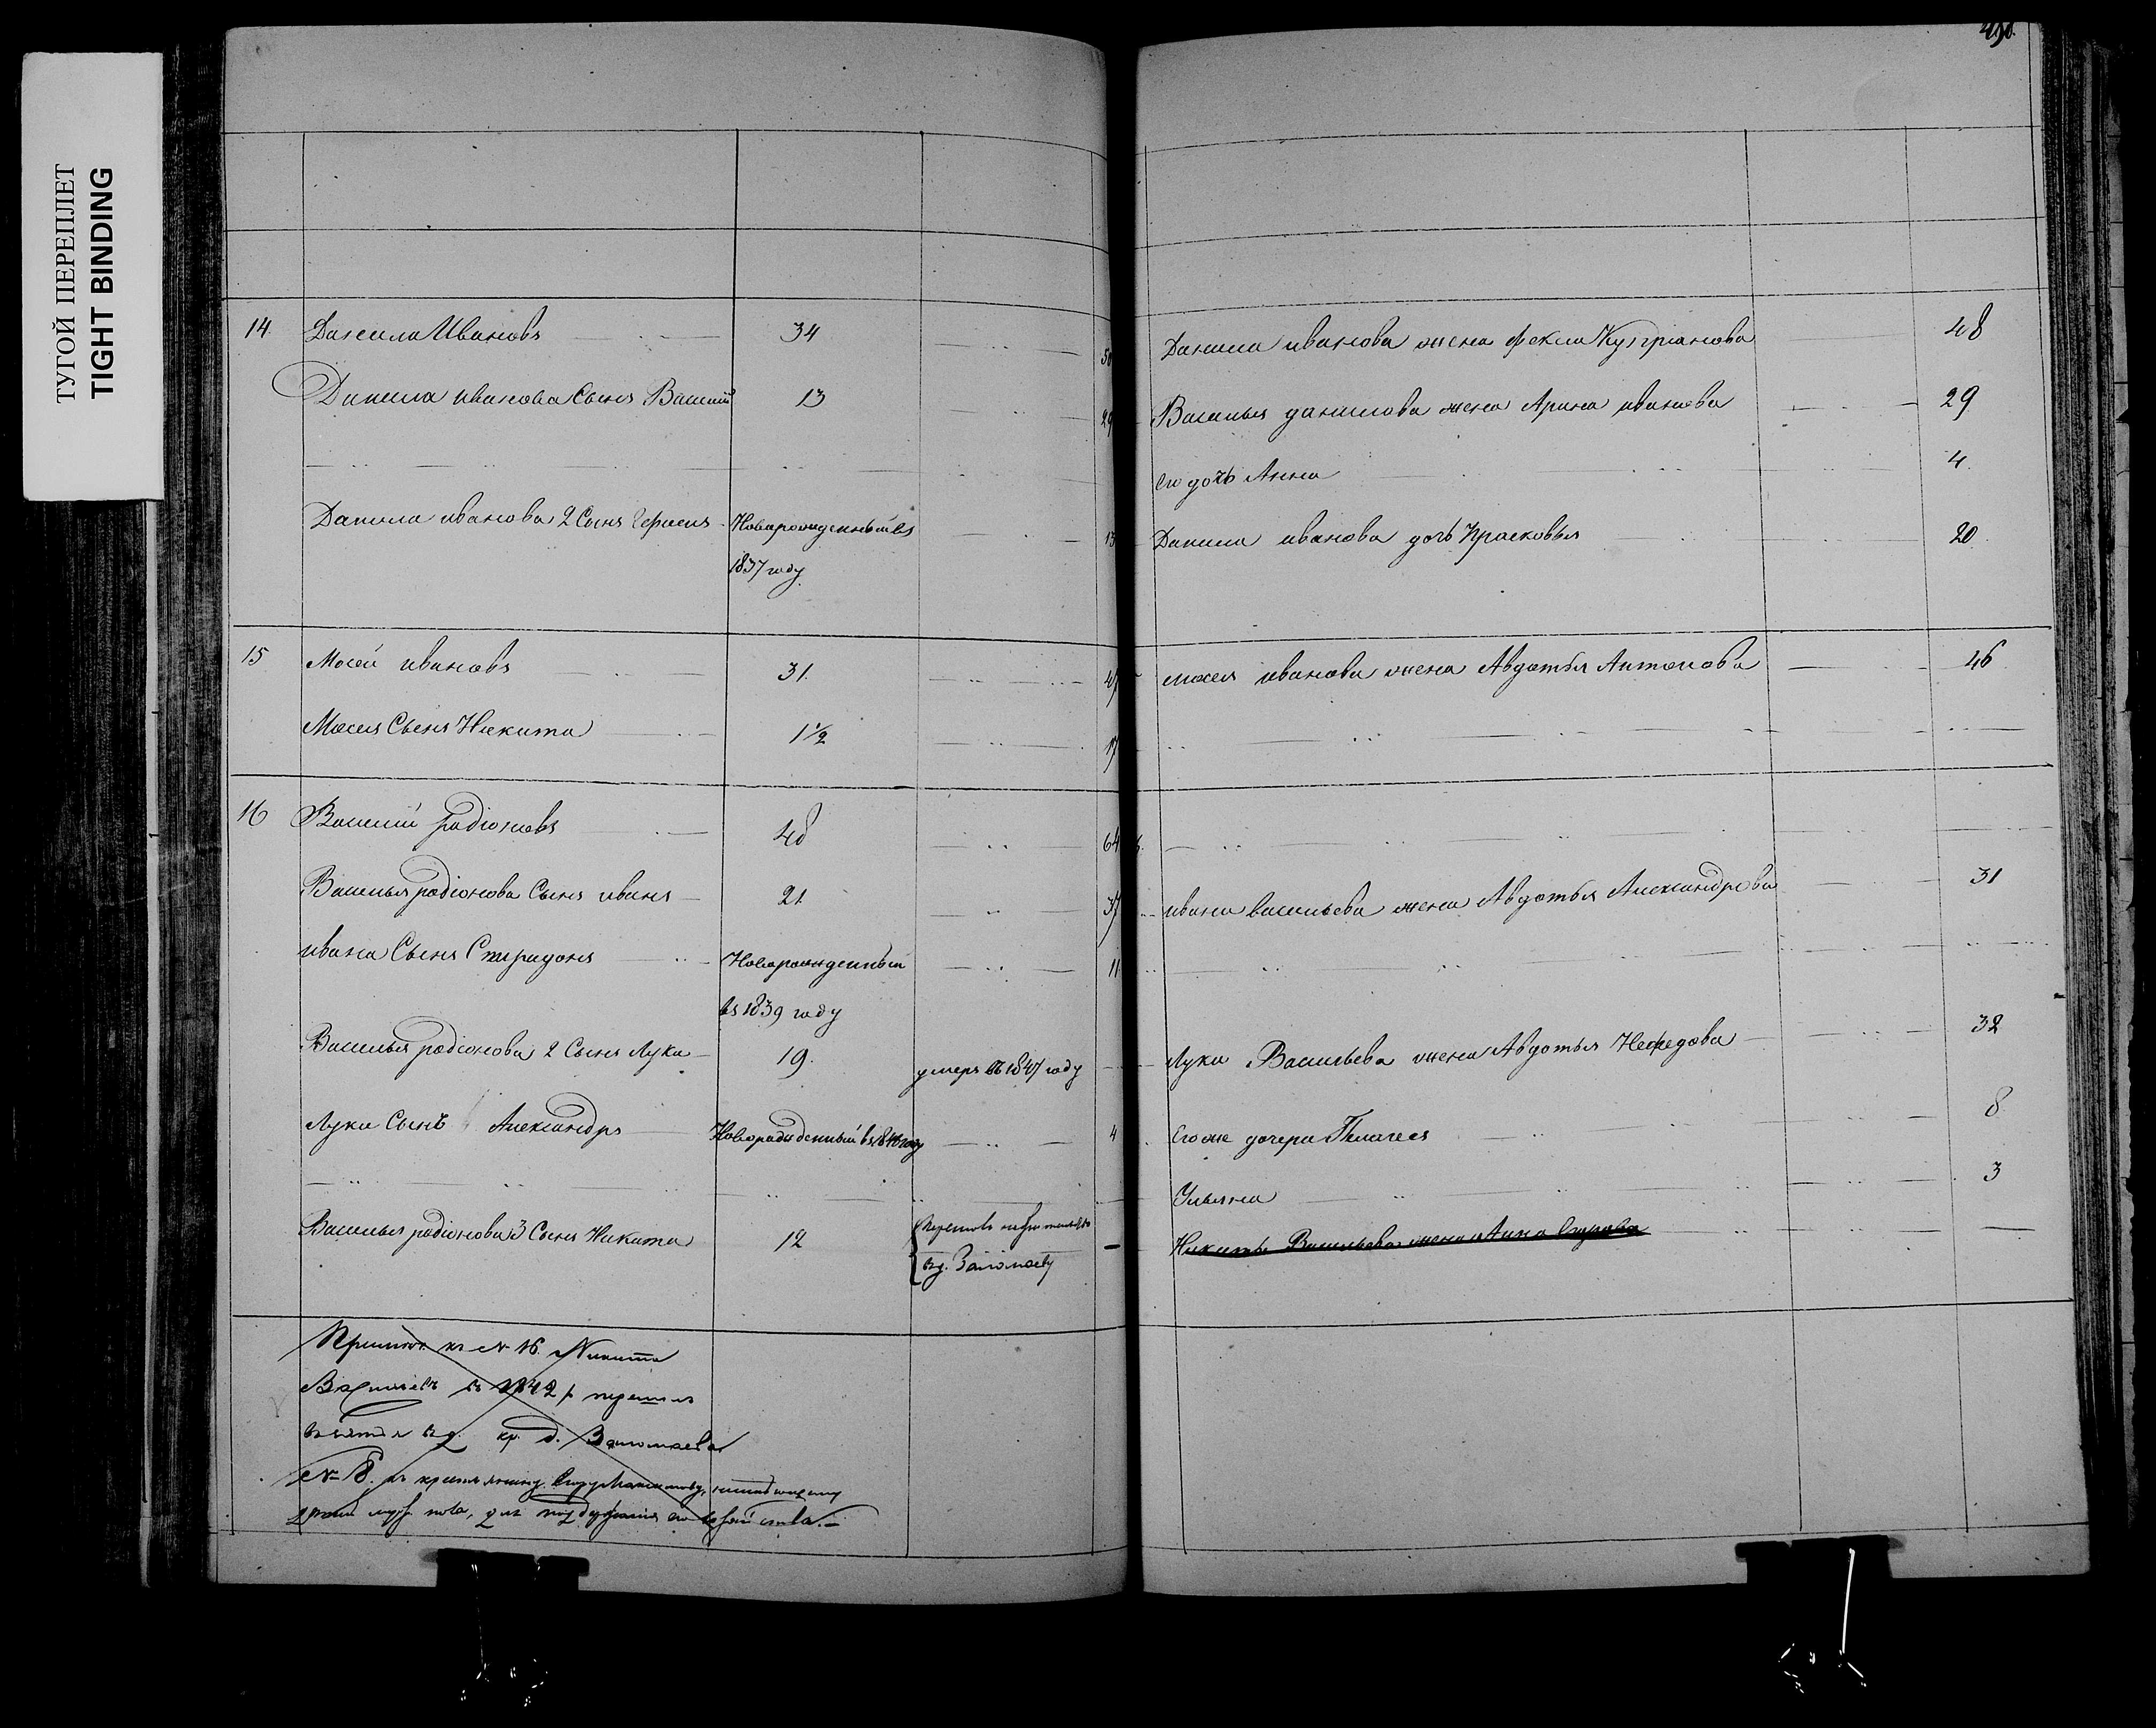 ТУГОЙ ПЕРЕПЛЕТ
TIGHT BINDING
14 Данила Ивановъ 34
Данила иванова Сынъ Василий 13 29
Данила иванова 2 Сынъ Новарожденный въ 13
1837 году
15 Мосей ивановъ 31. 47
Мосея Сынъ Никита 1 1/2 17
16 Василий радіоновъ 48 64
Василья радіонова Сынъ иванъ 21 37
ивана Сынъ Спиридонъ Новорожденный 11
въ 1839 году
Василья родіонова 2 Сынъ Лука 19. умеръ въ 1847 году
Луки Сынъ Александръ Новорожденный въ году 4
Василья родіонова 3 Сынъ Никита 12
въ д. Заломаеву
къ № 16. Никита
Васильевъ въ 1842 г. перешел
въ зятья въ д. кр. д. Заломаева
№ 8. къ крестьянину
муж. пола, для
Данила иванова жена Фекла Куприанова 48
Василья данилова жена Арина иванова 29
Его дочь Анна 4
Данила иванова дочь Прасковья 20
мосея иванова жена Авдотья Антонова 46
ивана васильева жена Авдотья Александрова 31
Луки Васильева жена Авдотья Нефедова 32
Его же дочери Пелагея 8
Ульяна 3
Никиты Васильева жена Анна